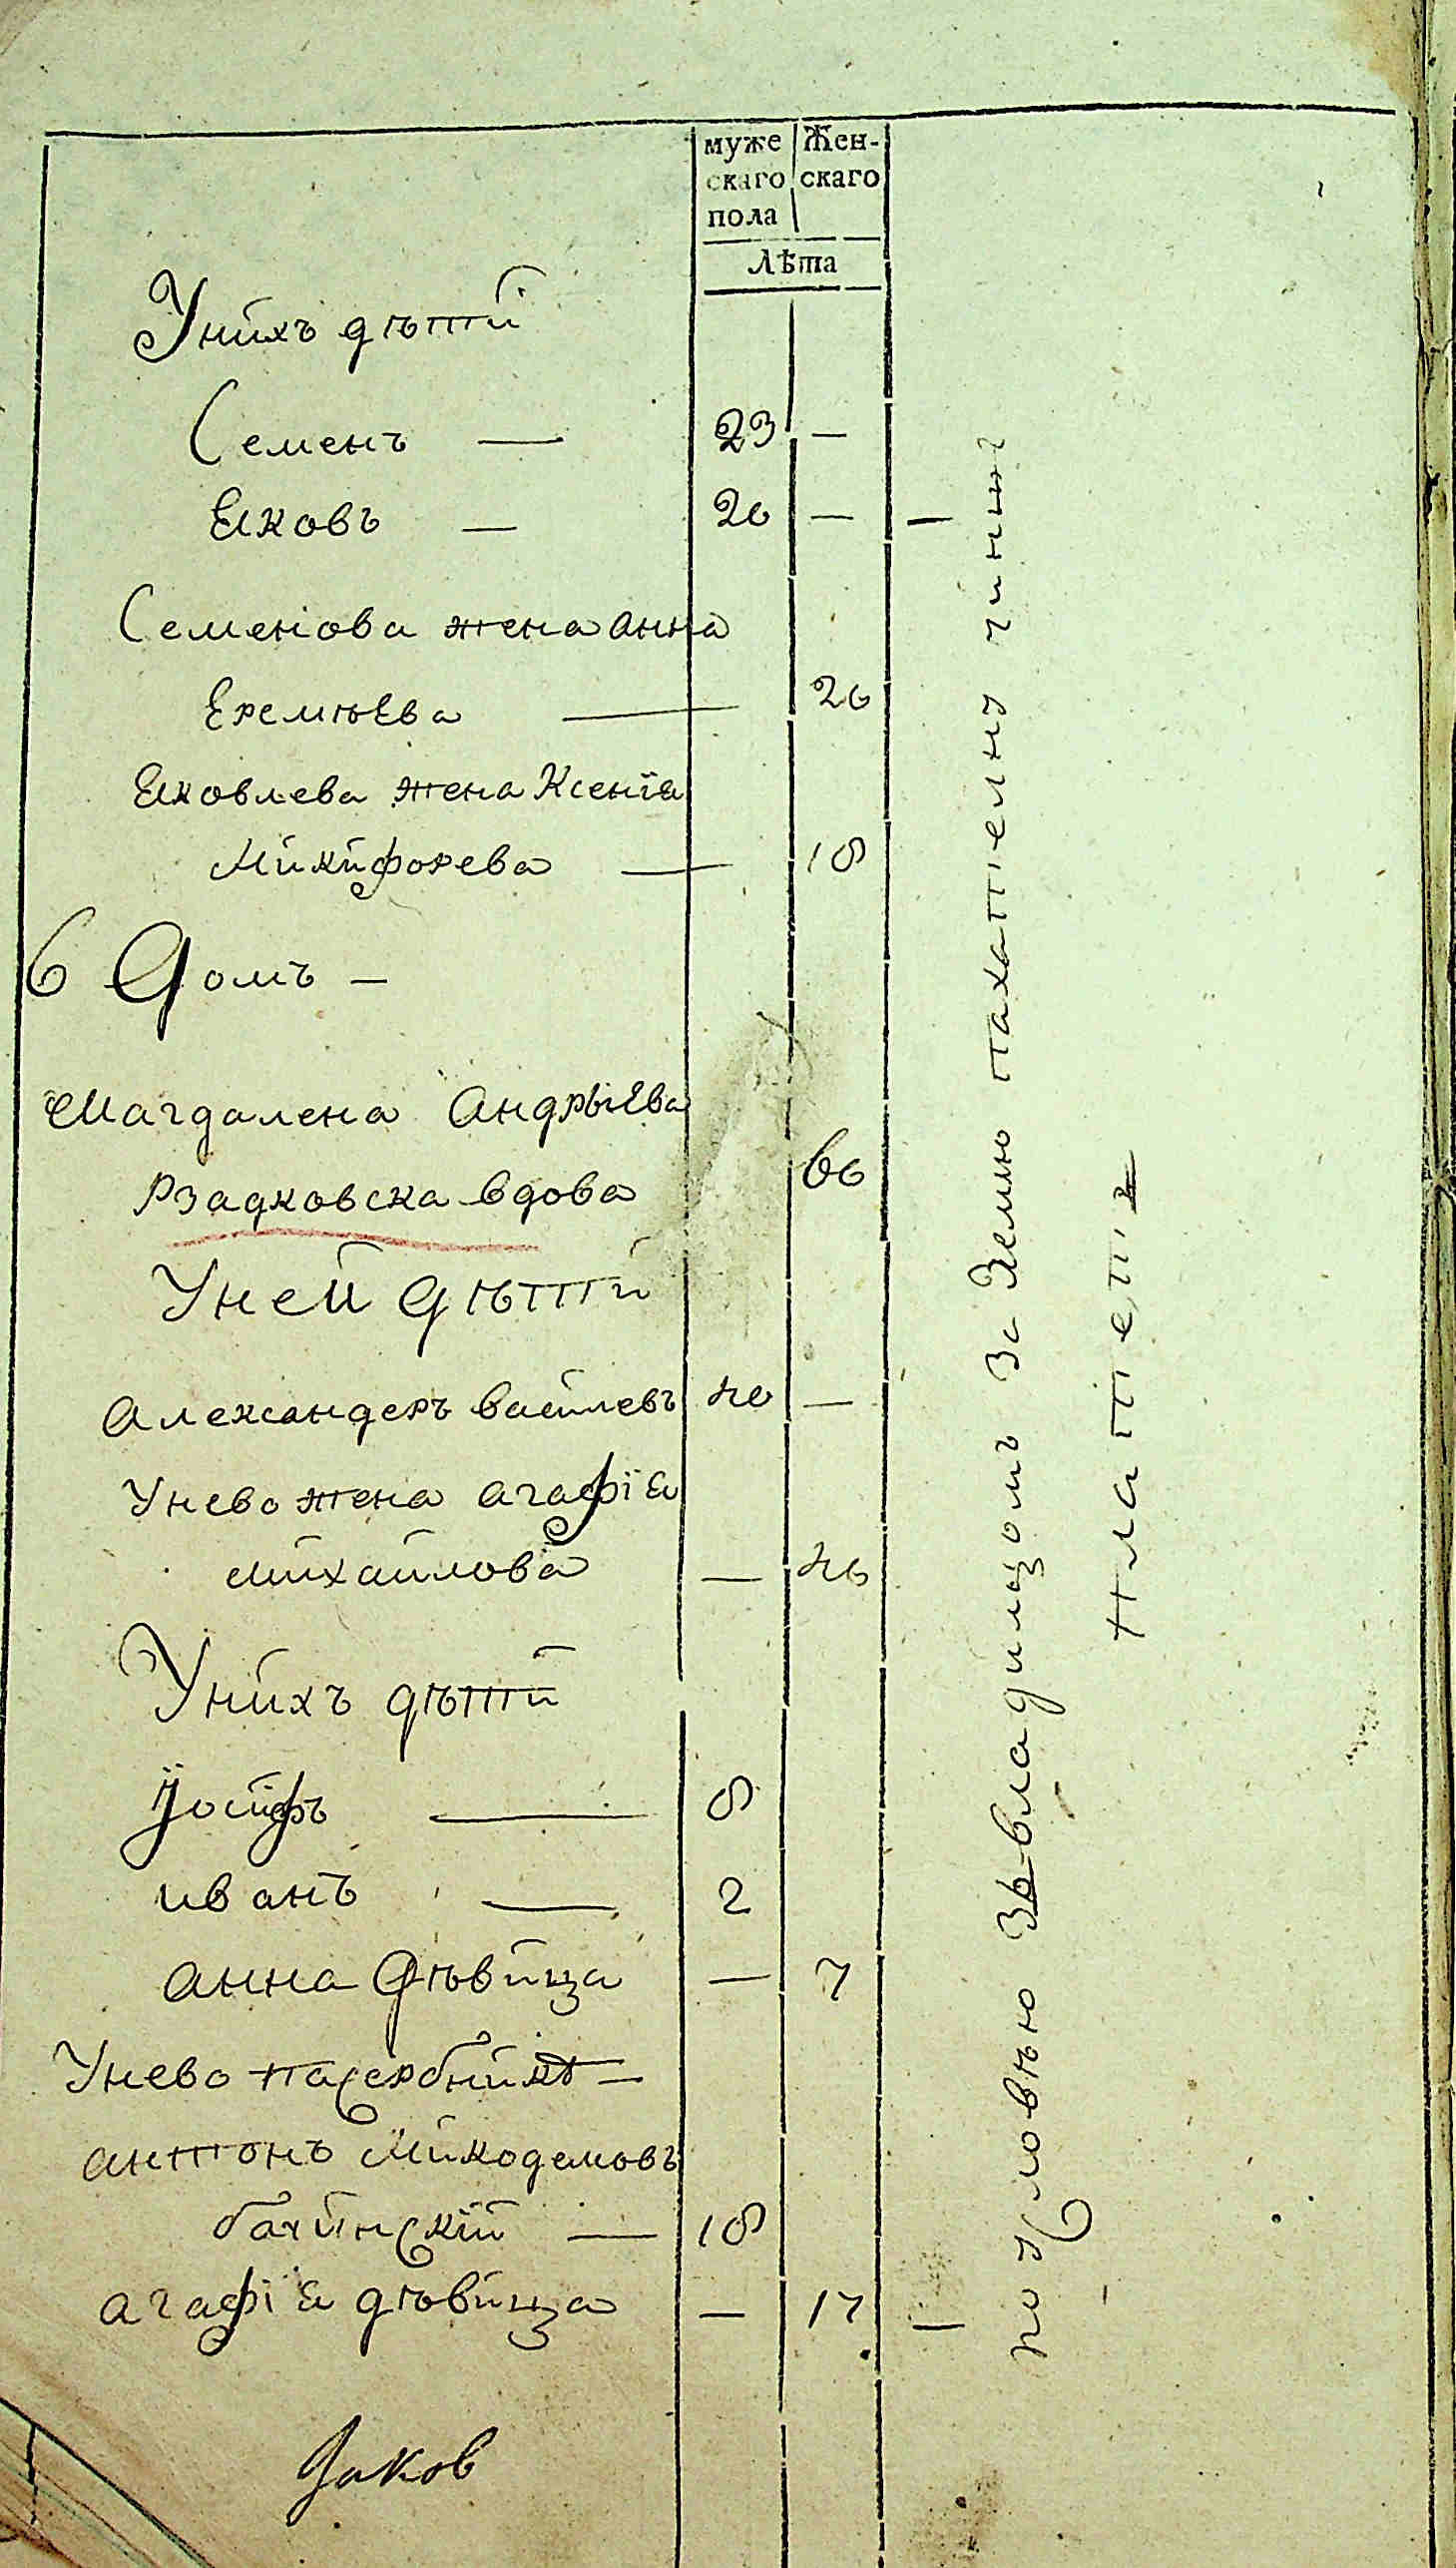 муже Жен-
скаго скаго
пола
Лѣта
Унихъ дѣти
Семенъ — 23 —
Яковъ — 20 —
Семенова жена анна
Еремѣева — 26
Яковлева жена Ксенїя
Микифорева — 18
6 Домъ —
Магдалена Андрыева
66
Рзадковска вдова
Уней дѣти
Александеръ васплевъ 40 —
Унево жена агафїя
михаилова — 46
Унихъ дѣти
Їосифъ — 8
иванъ — 2
анна дѣвица — 7
Унево пасербникъ —
антонъ Микодемовъ
бачинскїй — 18
агафїя дѣвица — 17
Jаков
по условію зъ владилцомъ за Землю пахателну чиншъ
платетъ